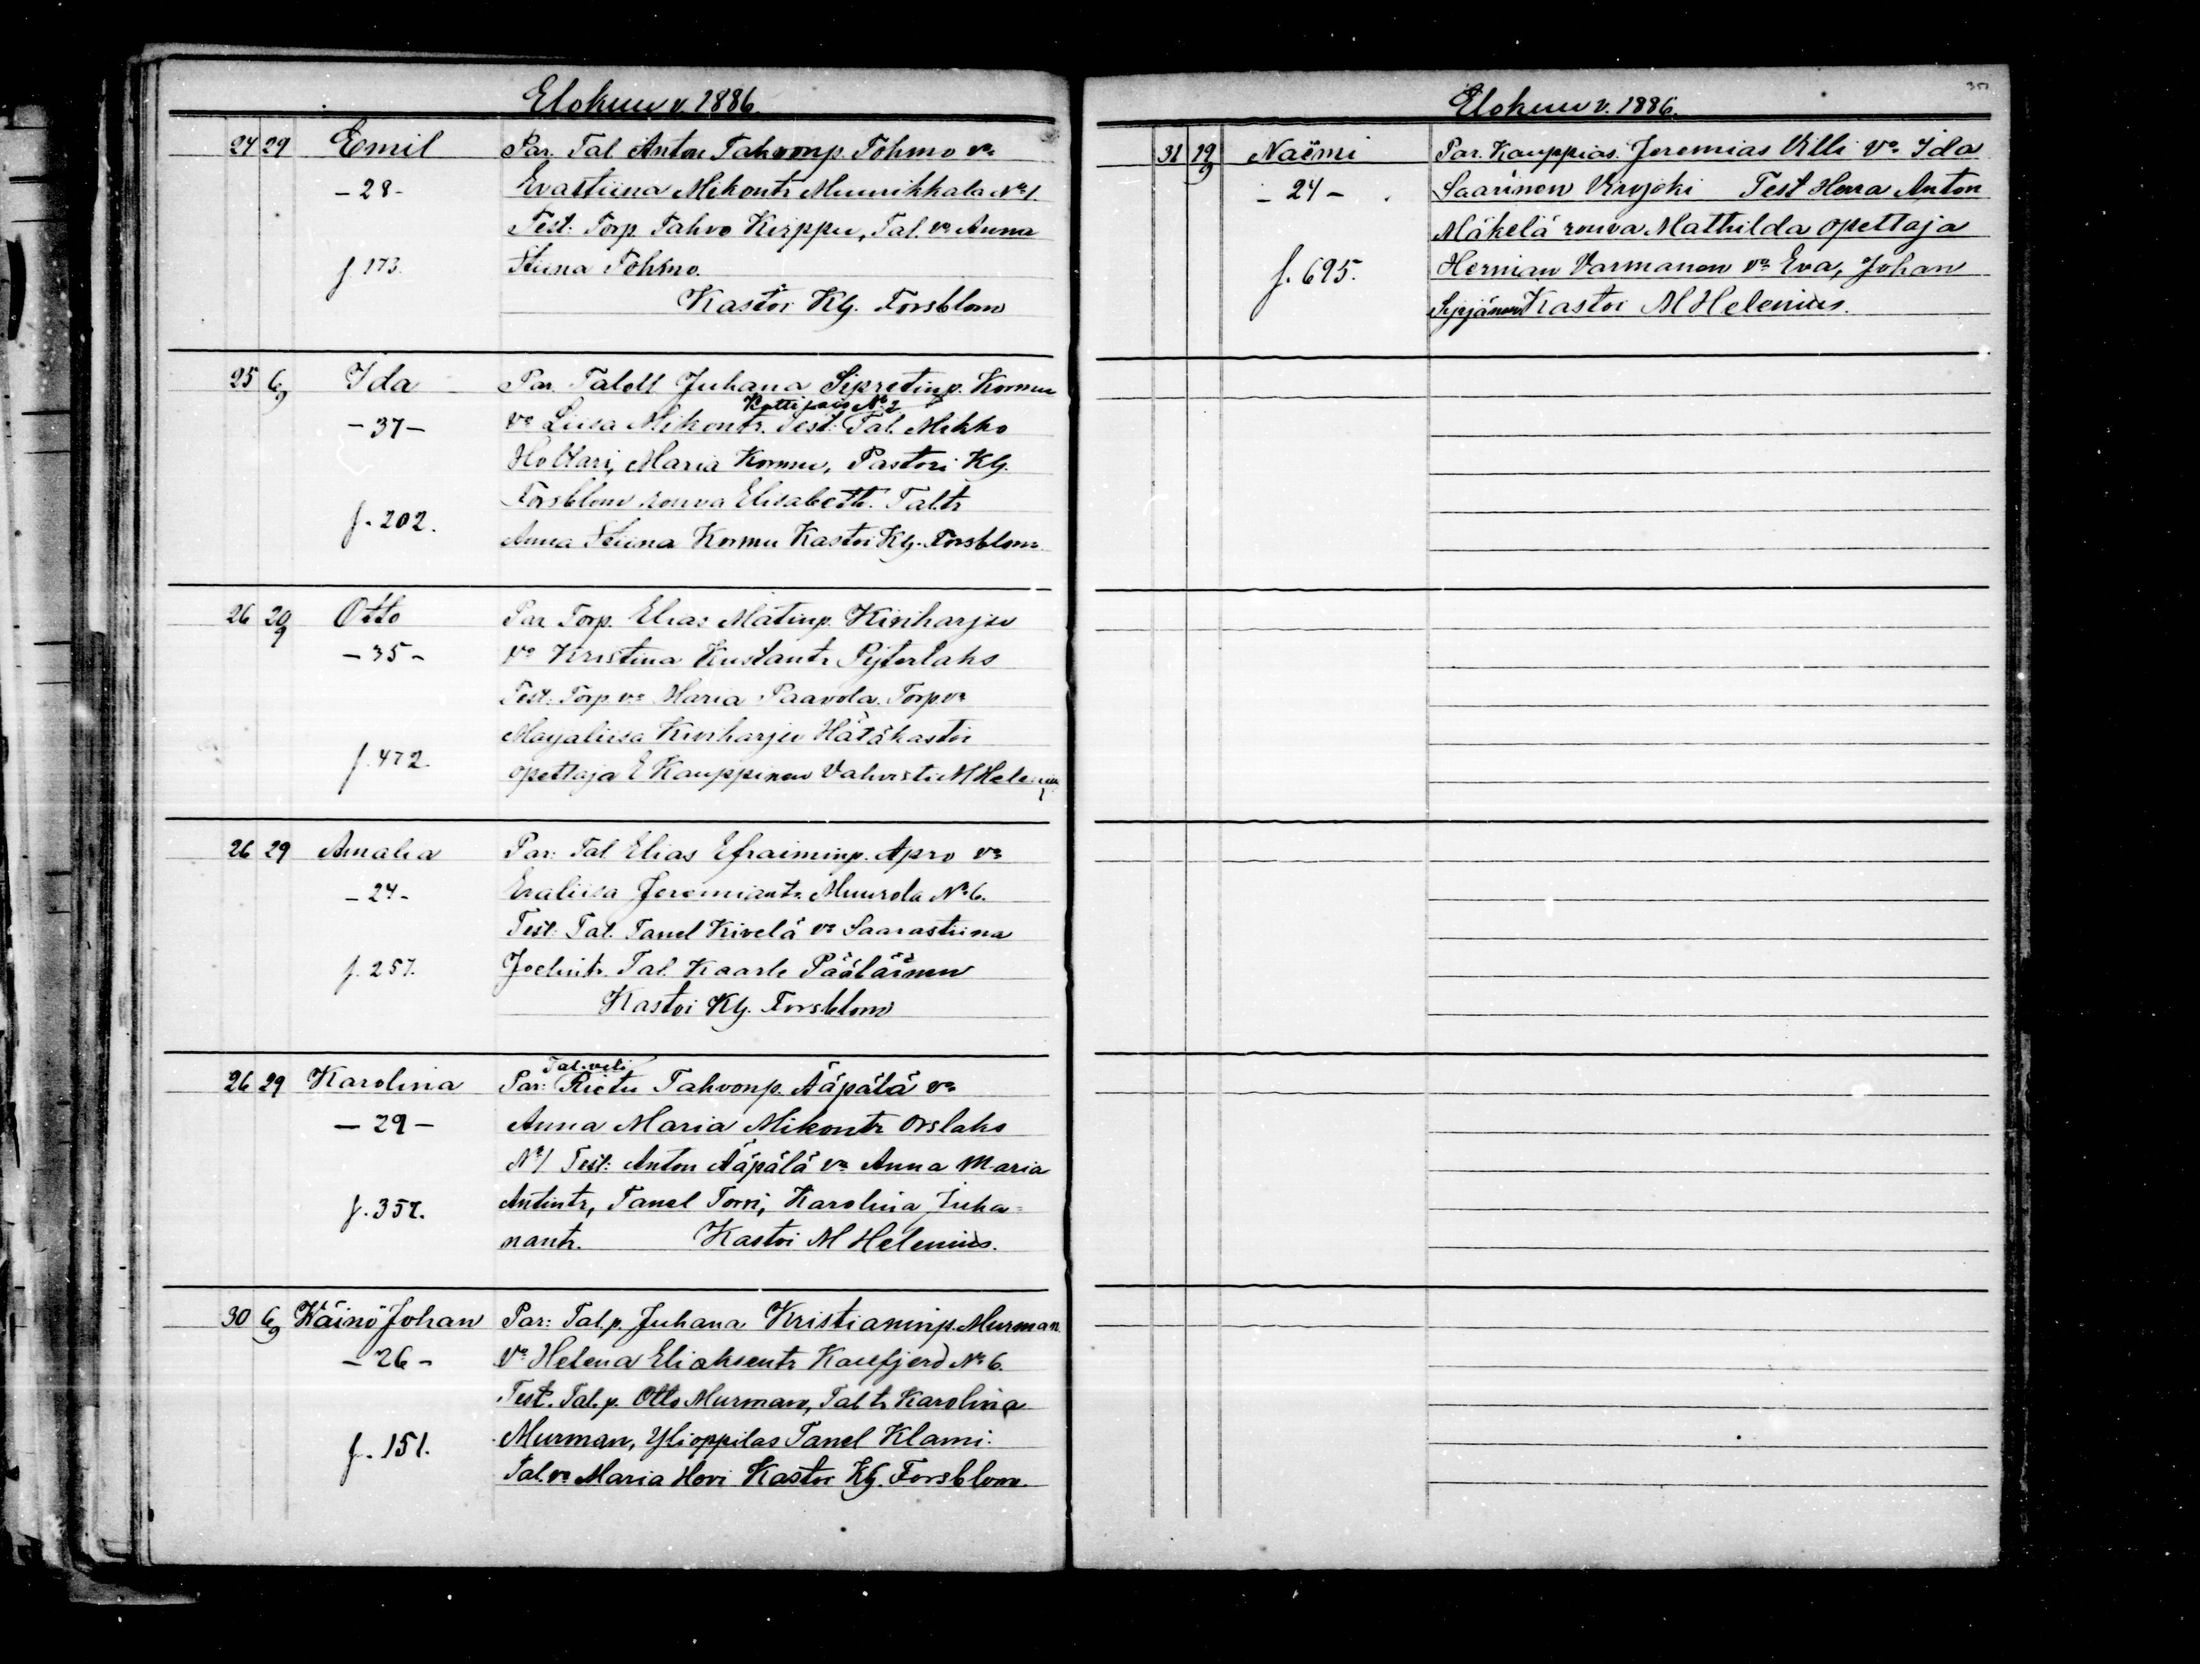 Elokuu v. 1886.
24 29 Emil Par. Tal Anton Tahvonp. Tohmo vo
- 28 - Evastiina Mikontr Muurikkala No 1.
Test: Torp. Tahvo Kirppu, Tal. vo Anna
f 173. Stiina Tohmo.
Kastoi Kg. Forsblom
25 6/9 Ida Par. Talell Juhana Sipretinp. Kormu
Kattilais No 2
- 37 - vo Liisa Mikontr. Test: Tal. Mikko
Holttari, Maria Kormu, Pastori Kg.
Forsblom rouva Elisabeth. Tal.tr
f. 202. Anna Stiina Kormu Kastoi Kg. Forsblom.
26 20/9 Otto Par Torp. Elias Matinp. Kiviharju
- 35 - vo Kristina Kustantr Pyterlaks
Test: Torp. vo Maria Paavola. Torp. vo
Mayaliisa Kiviharju Hätäkastoi
f. 472. opettaja E Kauppinen Vahvisti M Helenius
26 29 Amalia Par: Tal Elias Efraiminp. Apro vo
- 24 - Evaliisa Jeremiantr. Muurola No 6.
Test: Tal. Tanel Kivelä vo Saarastiina
f. 257. Joelintr. Tal. Kaarle Pääläinen
Kastoi Kg. Forsblom
Tal. veli
26 29 Karolina Par: Rietu Tahvonp. Ääpälä vo
- 29 - Anna Maria Mikontr Orslaks
No 1 Test: Anton Ääpälä vo Anna Maria
f. 357. Antintr, Tanel Torri, Karolina Juha=
nantr. Kastoi M Helenius.
30 6/9 Wäinö Johan Par: Tal.p. Juhana Kristianinp. Murman
- 26 - vo Helena Eliaksentr Kaufjerd No 6.
Test. Tal.p. Otto Murman, Tal tr Karolina
f. 151. Murman, Ylioppilas Tanel Klami.
Tal. vo Maria Hovi Kastoi Kg. Forsblom.
351
Elokuu v. 1886.
31 19/9 Naëmi Par. Kauppias. Jeremias Villi vo Ida
- 24 - Saarinen Virojoki Test Herra Anton
Mäkelä rouva Mathilda opettaja
f. 695. Herman Varmanen vo Eva, Johan
Syrjänen Kastoi M Helenius.